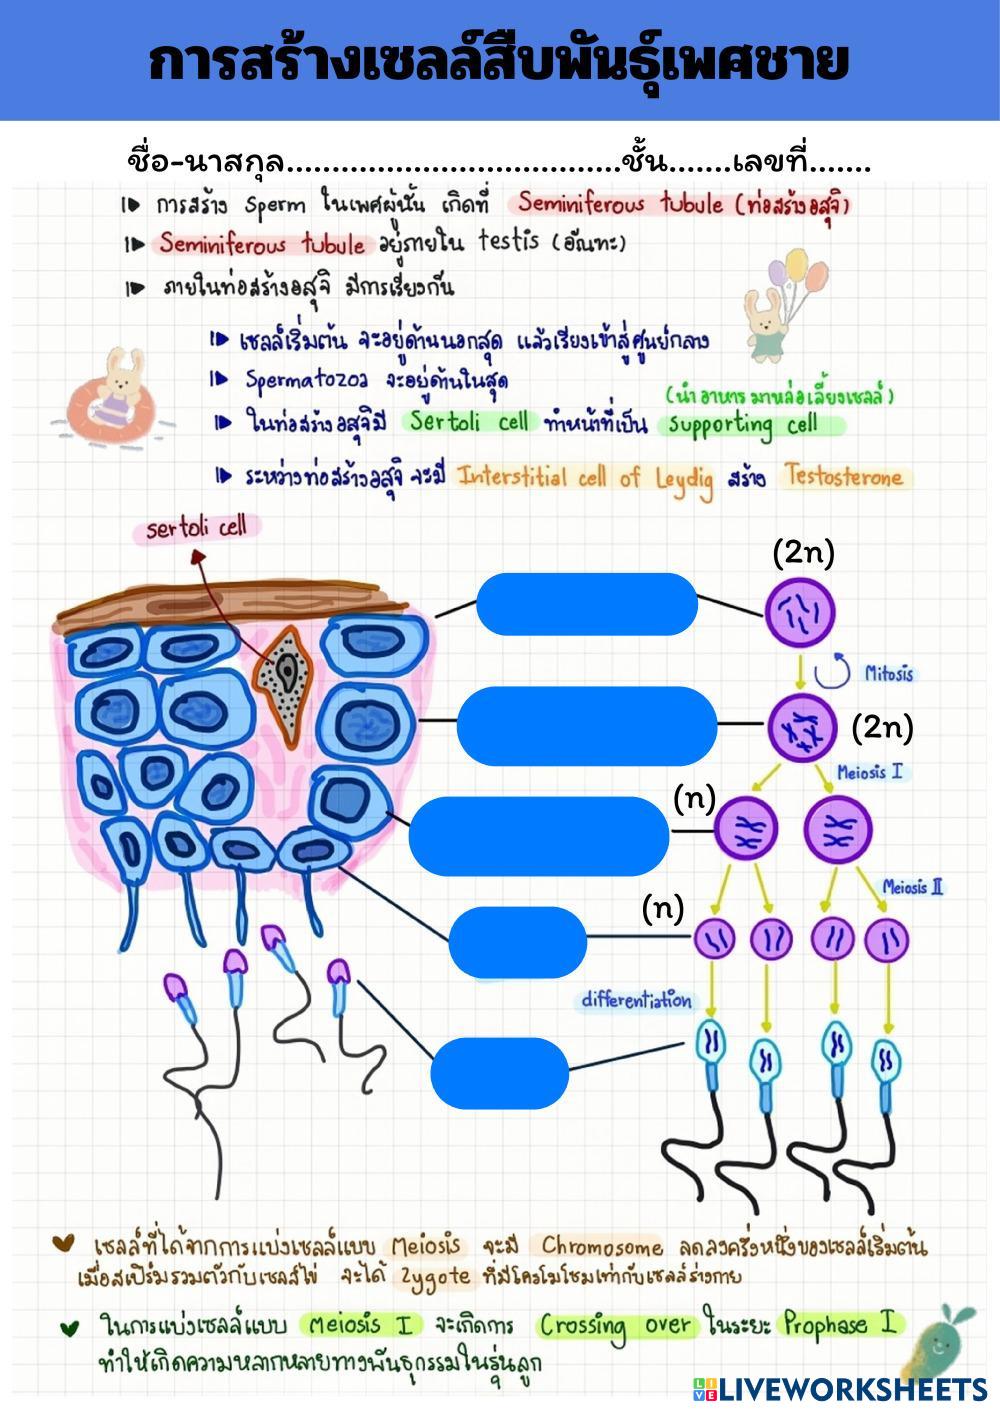 การสร้างเซลล์สืบพันธุ์เพศชาย
ชื่อ-นาสกุล.....................................ชั้น.......เลขที่.......
การสร้าง Sperm ในเพศผู้นั้น เกิดที่ Seminiferous tubule (ท่อสร้างอสุจิ)
Seminiferous tubule อยู่ภายใน testis (อัณฑะ)
ภายในท่อสร้างอสุจิ มีการเรียงกัน
เซลล์เริ่มต้น จะอยู่ด้านนอกสุด แล้วเรียงเข้าสู่ศูนย์กลาง
Spermatozoa จะอยู่ด้านในสุด
(นำอาหารมาหล่อเลี้ยงเซลล์)
ในท่อสร้างอสุจิมี Sertoli cell ทำหน้าที่เป็น Supporting cell
ระหว่างท่อสร้างอสุจิ จะมี Interstitial cell of Leydig สร้าง Testosterone
sertoli cell
(2n)
Mitosis
(2n)
Meiosis I
(n)
Meiosis II
(n)
differentiation
เซลล์ที่ได้จากการแบ่งเซลล์แบบ Meiosis จะมี Chromosome ลดลงครึ่งหนึ่งของเซลล์เริ่มต้น
เมื่อสเปิร์มรวมตัวกับเซลล์ไข่ จะได้ Zygote ที่มีโครโมโซมเท่ากับเซลล์ร่างกาย
ในการแบ่งเซลล์แบบ Meiosis I จะเกิดการ Crossing over ในระยะ Prophase I
ทำให้เกิดความหลากหลายทางพันธุกรรมในรุ่นลูก
LIVE LIVEWORKSHEETS